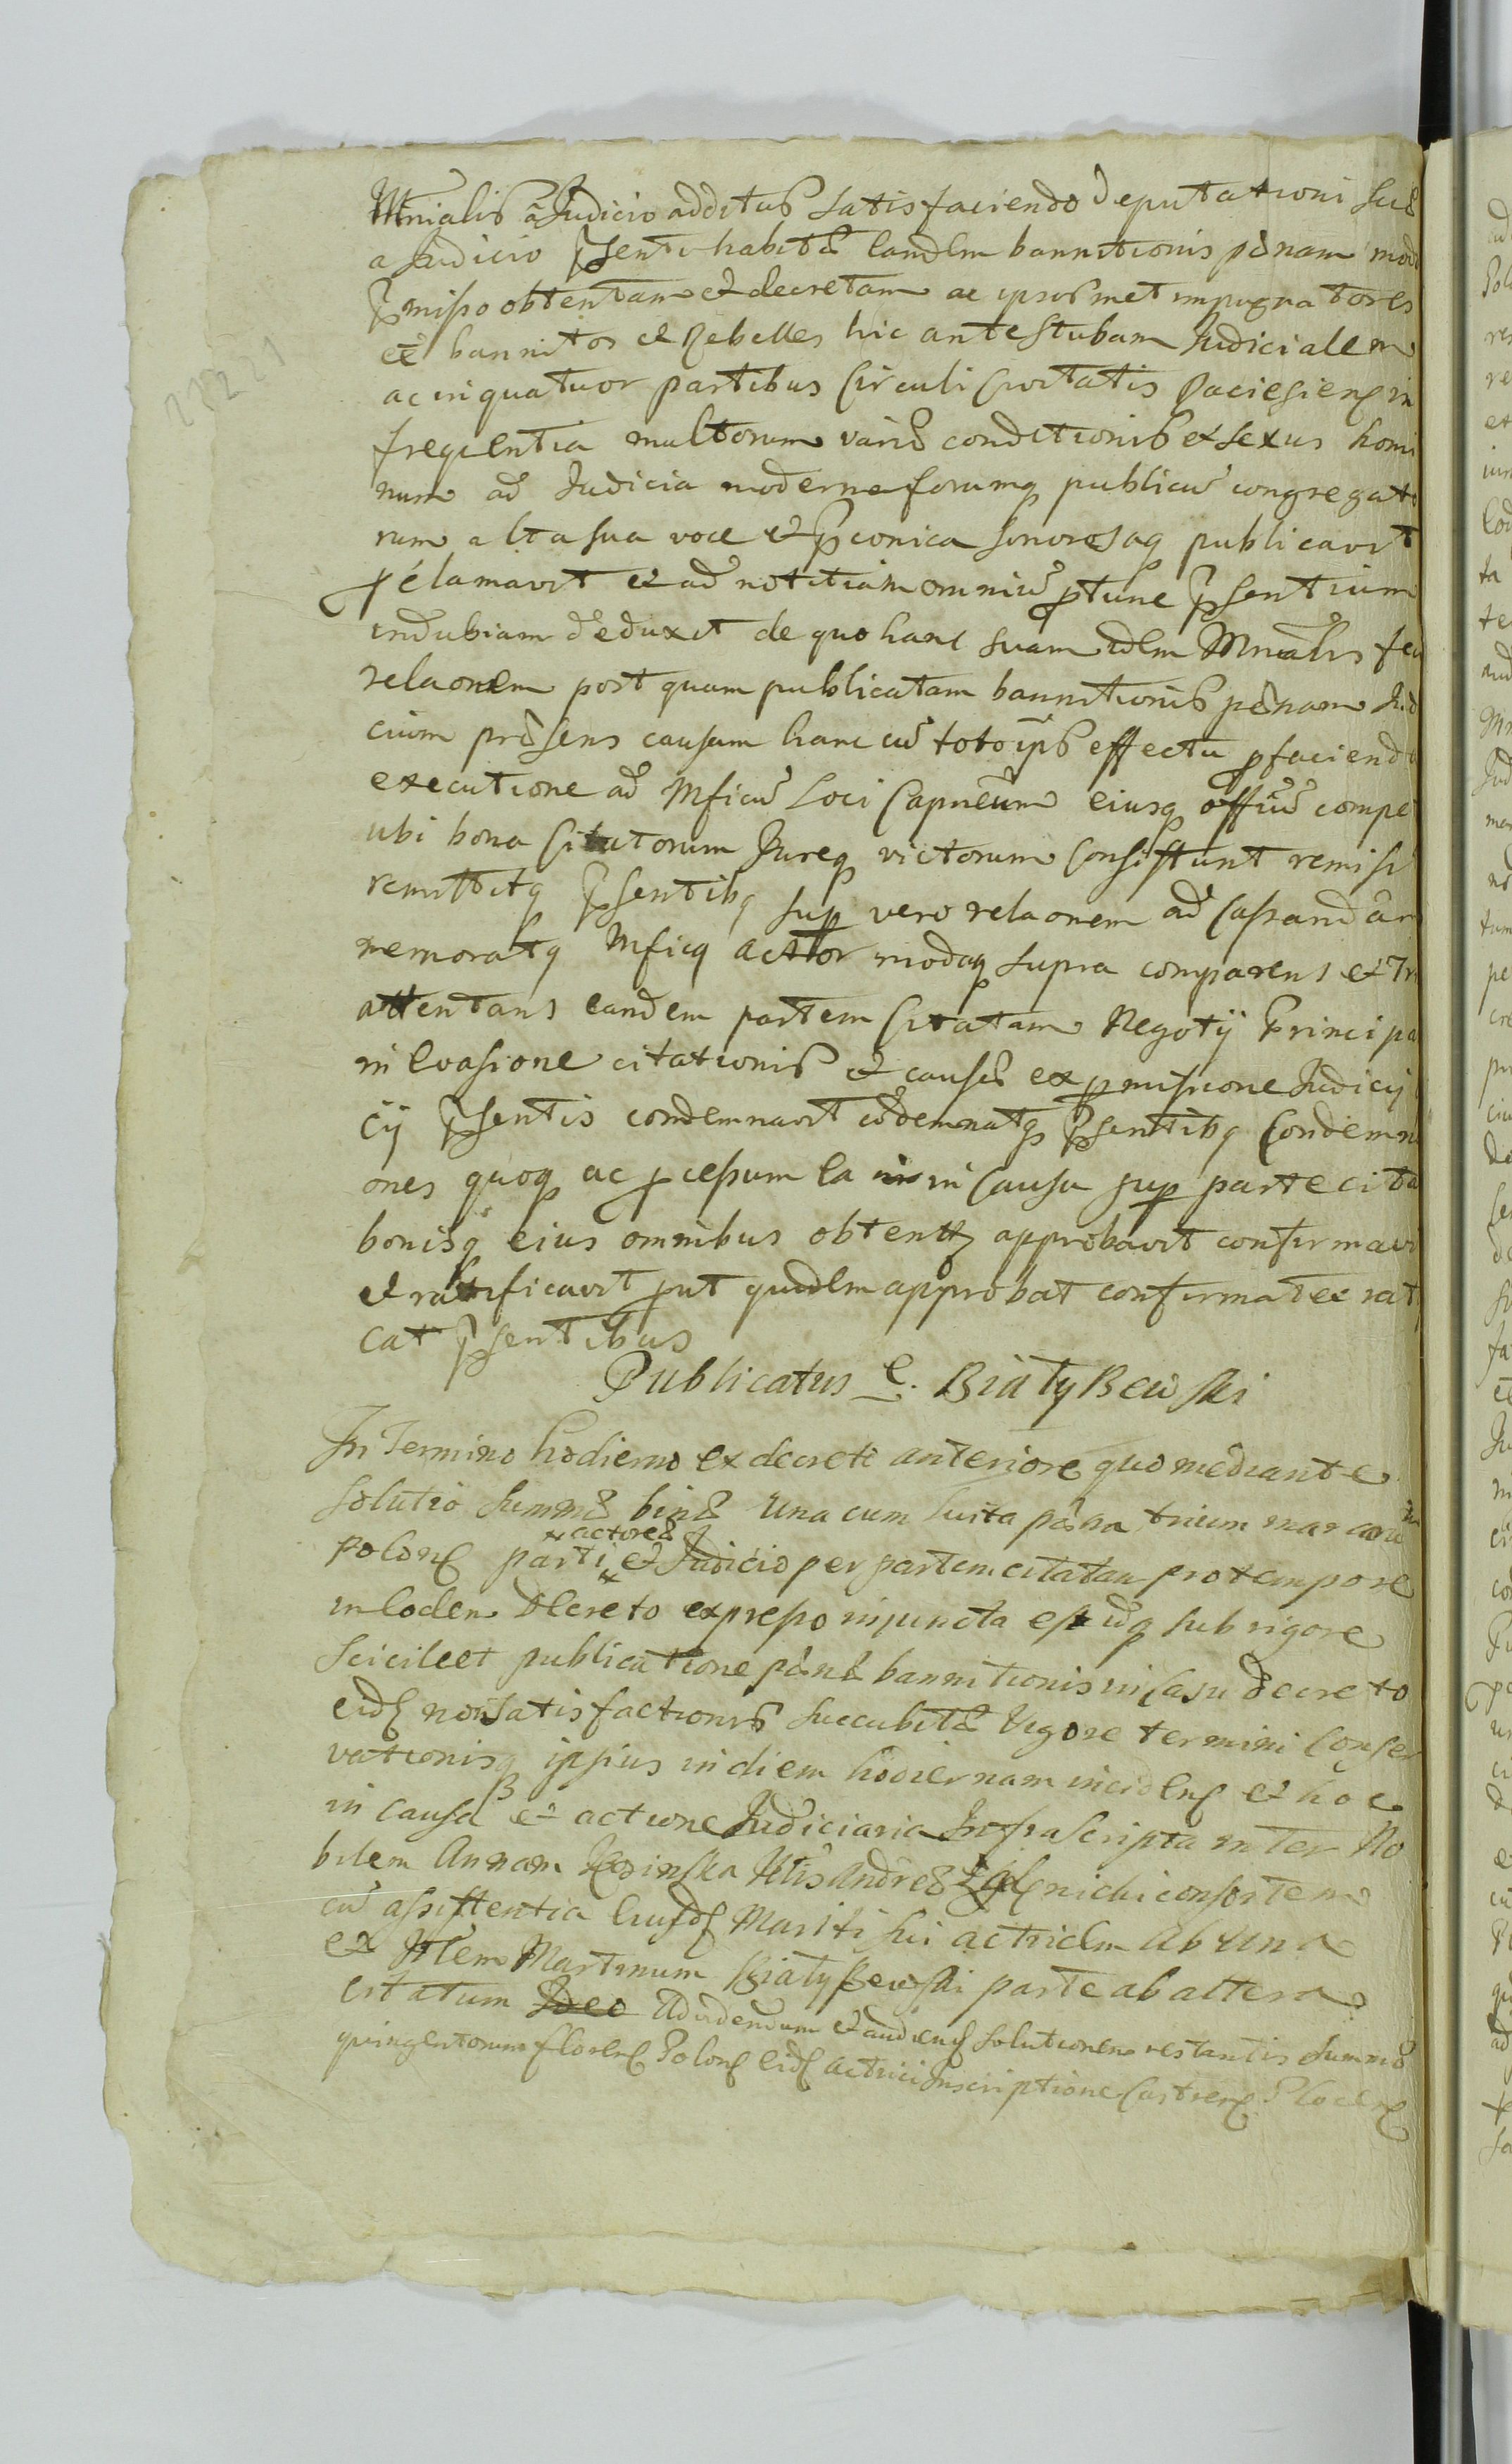 Mnialis a Judicio additus satisfaciendo deputationi suæ
a Judicio pͬsenti habitæ eandem bannitionis pænam modo
pͬmisso obtentam et decretam ac ipsosmet impugnatores
et bannitos et Rebelles hic ante stubam Judicialem
ac in quatuor partibus Circuli Civitatis Raciesiens in
frequentia multorum varis conditionis et sexus homi
num ad Judicia moderna forumq publicu congregato
rum alta sua voce et pͬconica sonorosaq publicavit
proclamavit et ad notitiam omniu protunc pͬsentium
indubiam deduxit de quo hanc suam idem Mnialis fecit
relaonem post quam publicatam bannitionis pænam Jud
cium præsens causam hanc cu toto ipsius effectu pro facienda
executione ad Mficu Loci Capneum eiusq offiu compe
ubi bona Citatorum Jureq victorum consistunt remisi
remittitq pͬsentibq sup vero relaonem ad Cassandam
memoratq Mficq actor modoq supra comparens et Tr
attentans eandem partem Citatam Negotij Principa
in evasione citationis et causæ ex pͬmissione Judicij
cij pͬsentis condemnavit codemnatq pͬsentibq Condemn
ones quoq ac processum ea in in Causa sup parte cita
bonisq eius omnibus obtentu approbavit confirmavi
et ratificavit prout quidem approbat confirmat et rati
cat pͬsentibus
Publicatus e. Białybewski
In Termino hodierno ex decreti anteriore quo mediante
solutio summæ binæ una cum luita pæna trium marcaru
polons parti et Judicio per partem citatam pro tempore
actoreæ
in eodem Decreto expresso injuncta est idq sub rigore
scicileet publicatione pænæ bannitionis in Casu decreto
eids non satisfactionis succubitæ Vigore termini Conser
vationisq ipsius in diem hodiernam incidens et hoc
in Causa et actione Judiciaria Infrascripta inter No
bilem Annam consortem
cu assistentia eiusds Mariti sui actricem ab una
et Martinum Białybewski parte ab altera
citatum Ideo Ad videndum et audiens solutionem restantis summæ
quingentorum florens Polons eids actrici Inscriptione Castrens Plocens